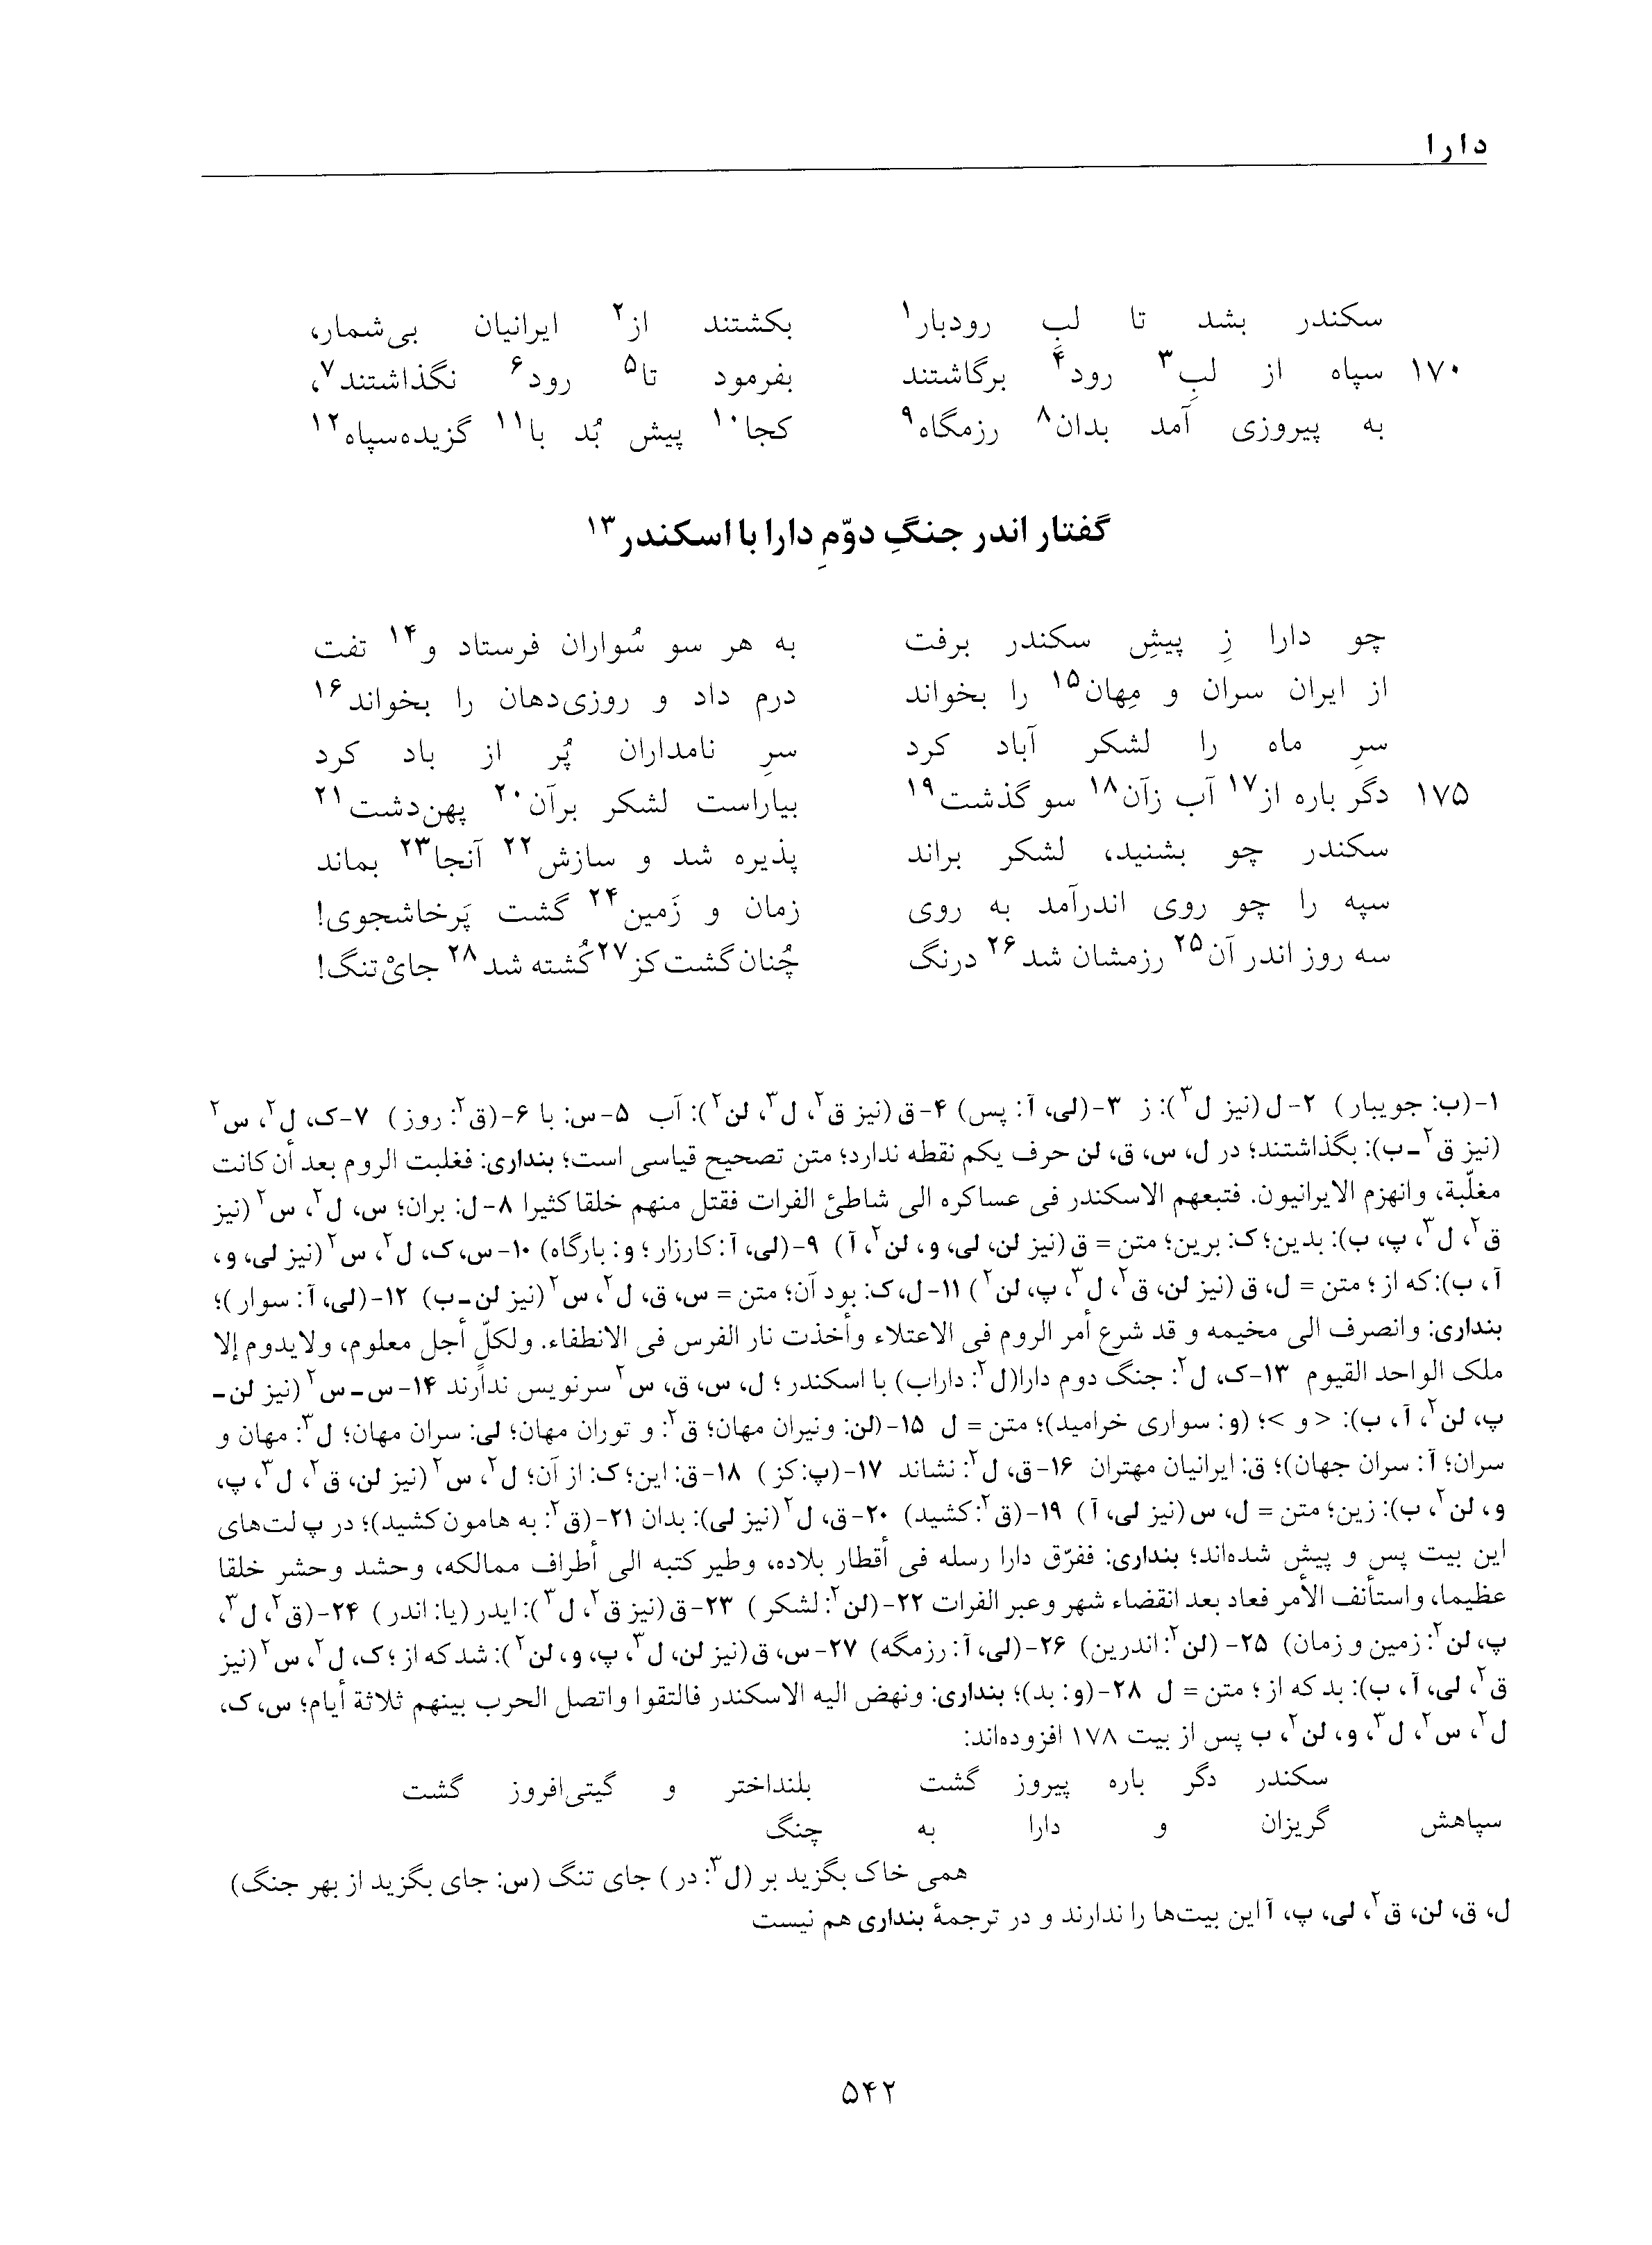 دارا
سکندر بشد تا لبِ رودبار۱ بکشتند از۲ ایرانیان بی‌شمار،
۱۷۰ سپاه از لبِ۳ رود۴ برگاشتند بفرمود تا۵ رود۶ نگذاشتند۷،
به پیروزی آمد بدان۸ رزمگاه۹ کجا۱۰ پیش بُد با۱۱ گزیده‌سپاه۱۲
گفتار اندر جنگِ دوّمِ دارا با اسکندر۱۳
چو دارا زِ پیشِ سکندر برفت به هر سو سُواران فرستاد و۱۴ تفت
از ایران سران و مِهان۱۵ را بخواند درم داد و روزی‌دهان را بخواند۱۶
سرِ ماه را لشکر آباد کرد سرِ نامداران پُر از باد کرد
۱۷۵ دگر باره از۱۷ آب زآن۱۸ سو گذشت۱۹ بیاراست لشکر برآن۲۰ پهن‌دشت۲۱
سکندر چو بشنید، لشکر براند پذیره شد و سازش۲۲ آنجا۲۳ بماند
سپه را چو روی اندرآمد به روی زمان و زَمین۲۴ گشت پَرخاشجوی!
سه روز اندر آن۲۵ رزمشان شد۲۶ درنگ چُنان گشت کز۲۷ کُشته شد۲۸ جایْ تنگ!
۱-(ب: جویبار) ۲-ل (نیز ل۳): ز ۳-(لی، آ: پس) ۴-ق (نیز ق۲، ل۳، لن۲): آب ۵-س: با ۶-(ق۲: روز) ۷-ک، ل۲، س۲
(نیز ق۲-ب): بگذاشتند؛ در ل، س، ق، لن حرف یکم نقطه ندارد؛ متن تصحیح قیاسی است؛ بنداری: فغلبت الروم بعد أن کانت
مغلّبة، وانهزم الایرانیون. فتبعهم الاسکندر فی عساکره الی شاطئ الفرات فقتل منهم خلقا کثیرا ۸-ل: بران؛ س، ل۲، س۲ (نیز
ق۲، ل۳، پ، ب): بدین؛ ک: برین؛ متن = ق (نیز لن، لی، و، لن۲، آ) ۹-(لی، آ: کارزار؛ و: بارگاه) ۱۰-س، ک، ل۲، س۲ (نیز لی، و،
آ، ب): که از؛ متن = ل، ق (نیز لن، ق۲، ل۳، پ، لن۲) ۱۱-ل، ک: بود آن؛ متن = س، ق، ل۲، س۲ (نیز لن-ب) ۱۲-(لی، آ: سوار)؛
بنداری: وانصرف الی مخیمه و قد شرع أمر الروم فی الاعتلاء وأخذت نار الفرس فی الانطفاء. ولکلّ أجل معلوم، ولایدوم إلا
ملک الواحد القیوم ۱۳-ک، ل۲: جنگ دوم دارا(ل۲: داراب) با اسکندر؛ ل، س، ق، س۲ سرنویس ندارند ۱۴-س-س۲ (نیز لن-
پ، لن۲، آ، ب): <و>؛ (و: سواری خرامید)؛ متن = ل ۱۵-(لن: ونیران مهان؛ ق۲: و توران مهان؛ لی: سران مهان؛ ل۳: مهان و
سران؛ آ: سران جهان)؛ ق: ایرانیان مهتران ۱۶-ق، ل۲: نشاند ۱۷-(پ: کز) ۱۸-ق: این؛ ک: از آن؛ ل۲، س۲ (نیز لن، ق۲، ل۳، پ،
و، لن۲، ب): زین؛ متن = ل، س (نیز لی، آ) ۱۹-(ق۲: کشید) ۲۰-ق، ل۲ (نیز لی): بدان ۲۱-(ق۲: به هامون کشید)؛ در پ لت‌های
این بیت پس و پیش شده‌اند؛ بنداری: ففرّق دارا رسله فی أقطار بلاده، وطیر کتبه الی أطراف ممالکه، وحشد وحشر خلقا
عظیما، واستأنف الأمر فعاد بعد انقضاء شهر وعبر الفرات ۲۲-(لن۲: لشکر) ۲۳-ق (نیز ق۲، ل۳): ایدر (یا: اندر) ۲۴-(ق۲، ل۳،
پ، لن۲: زمین و زمان) ۲۵- (لن۲: اندرین) ۲۶-(لی، آ: رزمگه) ۲۷-س، ق (نیز لن، ل۳، پ، و، لن۲): شد که از؛ ک، ل۲، س۲ (نیز
ق۲، لی، آ، ب): بد که از؛ متن = ل ۲۸-(و: بد)؛ بنداری: ونهض الیه الاسکندر فالتقوا واتصل الحرب بینهم ثلاثة أیام؛ س، ک،
ل۲، س۲، ل۳، و، لن۲، ب پس از بیت ۱۷۸ افزوده‌اند:
سکندر دگر باره پیروز گشت بلنداختر و گیتی‌افروز گشت
سپاهش گریزان و دارا به چنگ
همی خاک بگزید بر (ل۳: در) جای تنگ (س: جای بگزید از بهر جنگ)
ل، ق، لن، ق۲، لی، پ، آ این بیت‌ها را ندارند و در ترجمهٔ بنداری هم نیست
۵۴۲